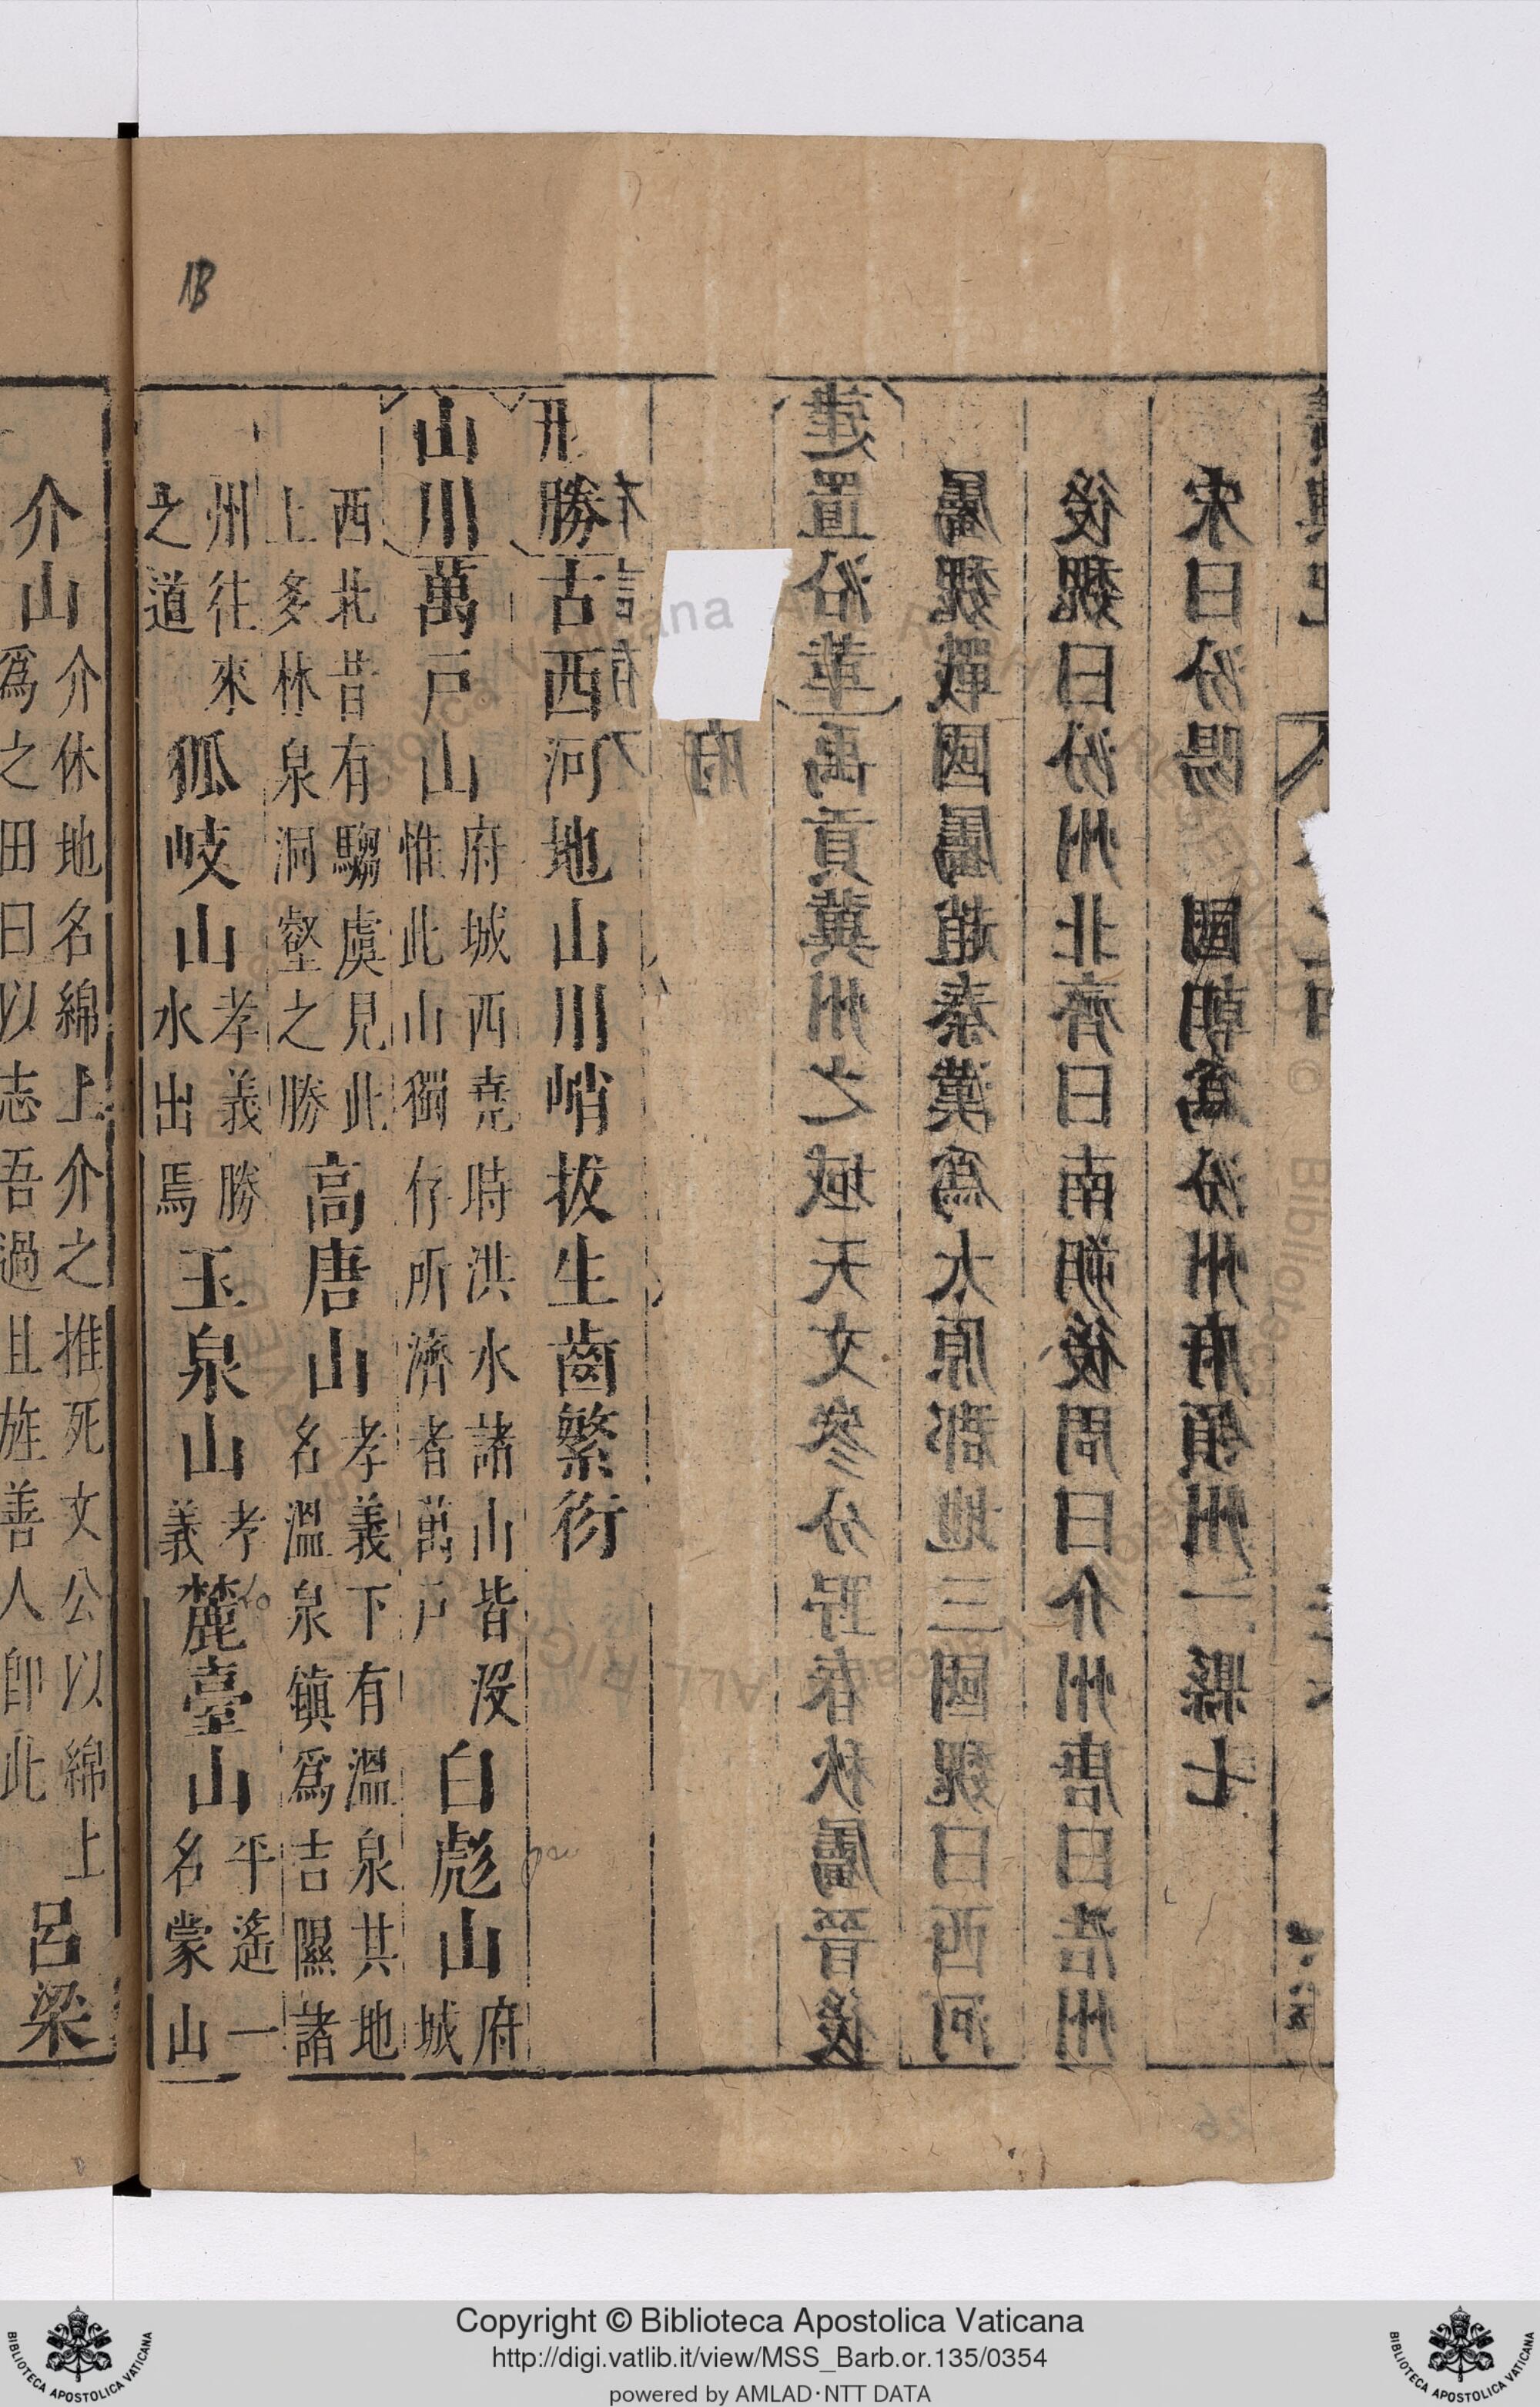 18
宋曰汾陽 國朝爲汾州府領州一縣七
後魏曰汾州北齊曰南朔後周曰介州唐曰浩州
屬魏戰國屬趙秦漢爲太原郡地三國魏曰西河
建置沿革禹貢冀州之域天文參分野春秋屬晉後
府
形勝古西河地山川峭拔生齒繁衍
山川萬戶山府城西堯時洪水諸山皆沒惟此山獨存所濟者萬戶白彪山府城
西北昔有騶虞見此上多林泉洞壑之勝高唐山孝義下有溫泉其地名溫泉鎮爲吉隰諸
州往來之道狐岐山孝義勝水出焉玉泉山孝義麓臺山平遙一名蒙山
介山介休地名綿上介之推死文公以綿上爲之田曰以志吾過且旌善人卽此呂梁
Copyright © Biblioteca Apostolica Vaticana
http://digi.vatlib.it/view/MSS_Barb.or.135/0354
powered by AMLAD·NTT DATA
BIBLIOTECA APOSTOLICA VATICANA
BIBLIOTECA APOSTOLICA VATICANA